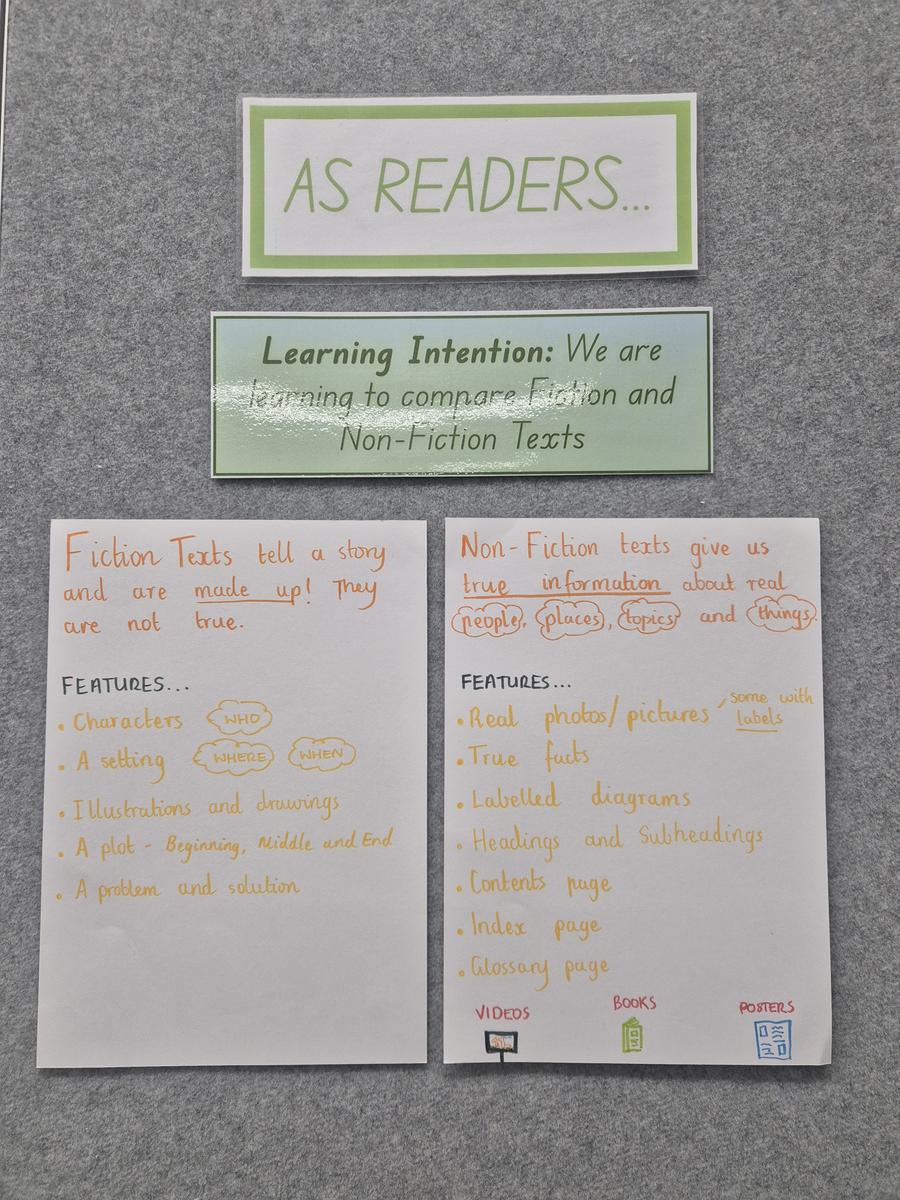 AS READERS...
Learning Intention: We are
learning to compare Fiction and
Non-Fiction Texts
Fiction Texts tell a story
and are made up! They
are not true.
FEATURES...
• Characters WHO
• A setting WHERE WHEN
• Illustrations and drawings
• A plot - Beginning, Middle and End
• A problem and solution
Non-Fiction texts give us
true information about real
people, places, topics and things.
FEATURES...
• Real photos/pictures, some with labels
• True facts
• Labelled diagrams
• Headings and Subheadings
• Contents page
• Index page
• Glossary page
VIDEOS BOOKS POSTERS